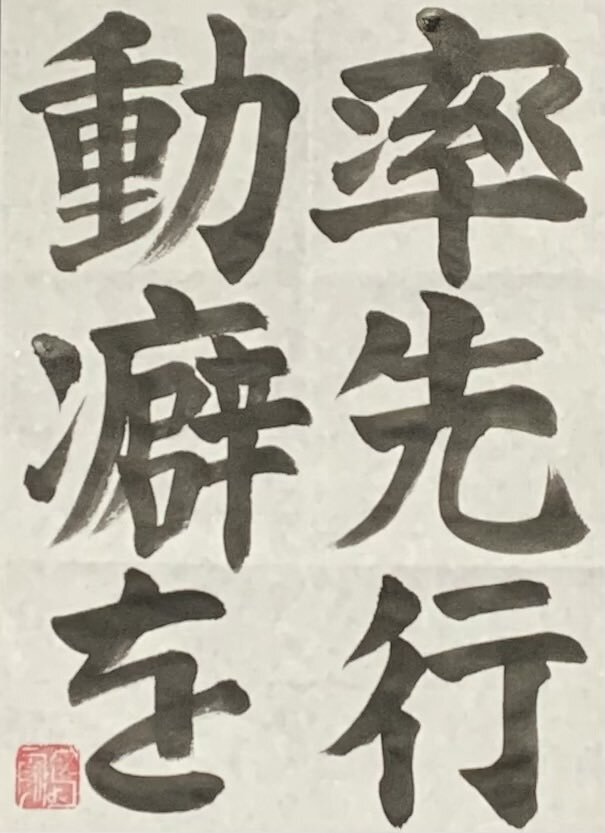 率先行
動癖を